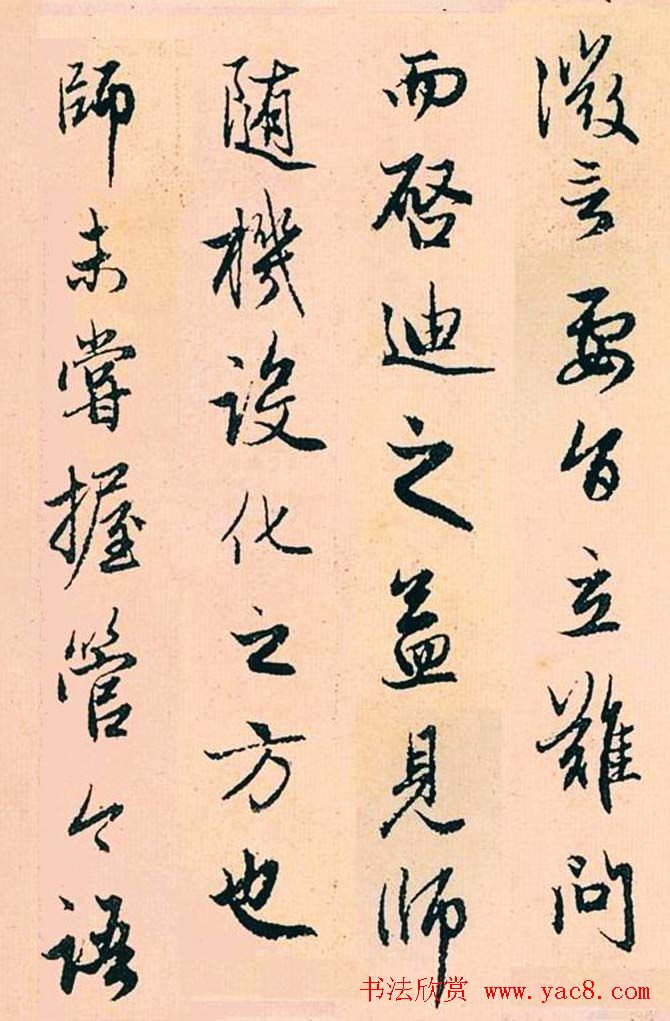 微言要旨立難問
而啓迪之益見師
随機設化之方也
師未嘗握管今語
书法欣赏 www.yac8.com